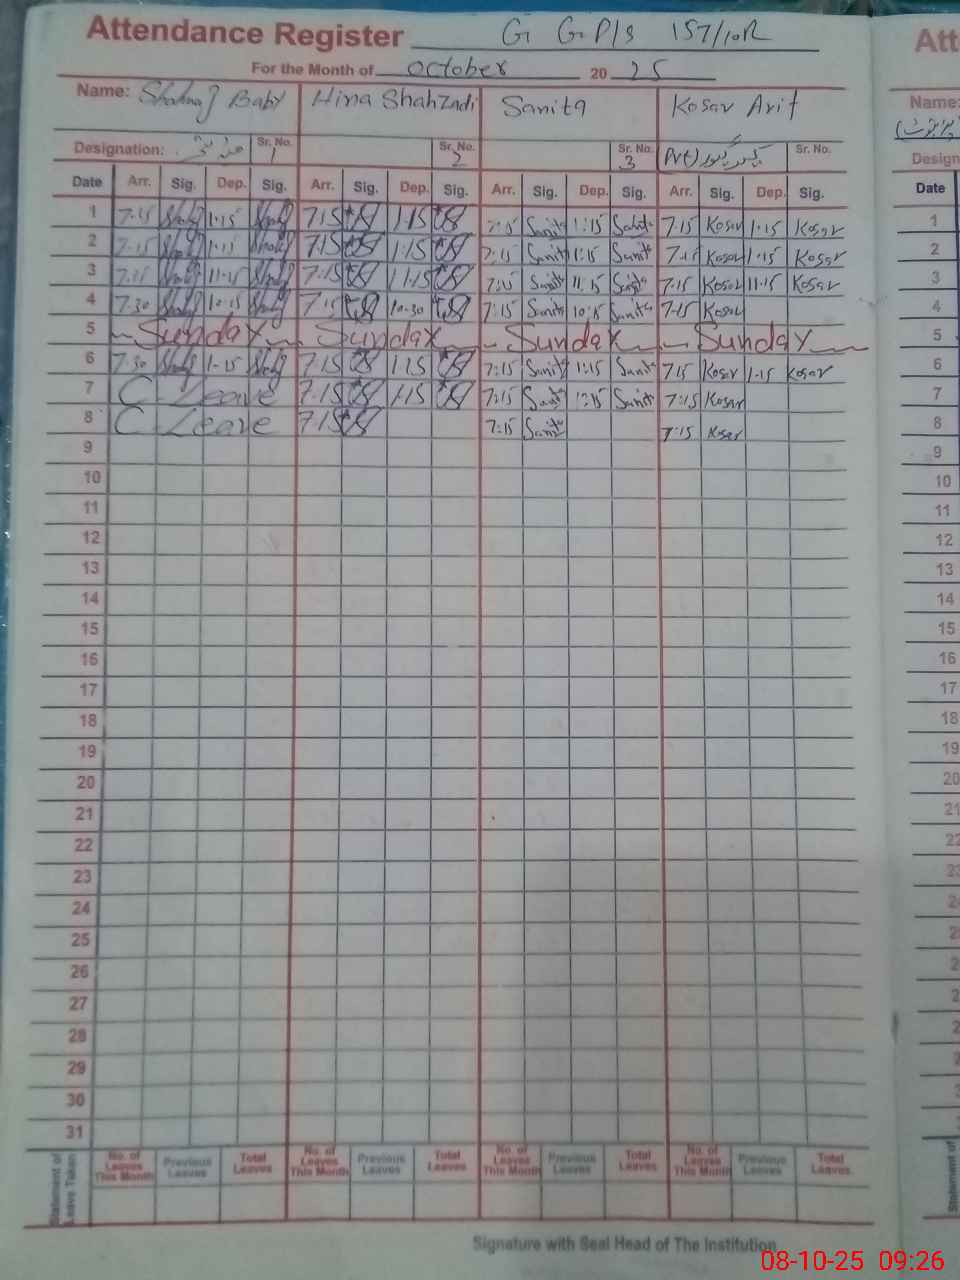 Attendance Register G G P/S 157/10R
For the Month of October 2025
Name: Shahnaz Baby Hina Shahzadi Sanita Kosar Arif
Designation: Sr. No. 1 Sr. No. 2 Sr. No. 3 (Pvt) Sr. No.
Date Arr. Sig. Dep. Sig. Arr. Sig. Dep. Sig. Arr. Sig. Dep. Sig. Arr. Sig. Dep. Sig.
1 7:15 1:15 7:15 1:15 7:15 Sanita 1:15 Sanita 7:15 Kosar 1:15 Kosar
2 7:15 1:15 7:15 1:15 7:15 Sanita 1:15 Sanita 7:15 Kosar 1:15 Kosar
3 7:15 11:15 7:15 11:15 7:15 Sanita 11:15 Sanita 7:15 Kosar 11:15 Kosar
4 7:30 10:15 7:15 10:30 7:15 Sanita 10:15 Sanita 7:15 Kosar
5 Sunday Sunday Sunday Sunday
6 7:30 1:15 7:15 1:15 7:15 Sanita 1:15 Sanita 7:15 Kosar 1:15 Kosar
7 C. Leave 7:15 1:15 7:15 Sanita 1:15 Sanita 7:15 Kosar
8 C Leave 7:15 7:15 Sanita 7:15 Kosar
9
10
11
12
13
14
15
16
17
18
19
20
21
22
23
24
25
26
27
28
29
30
31
Statement of Leave Taken No. of Leaves This Month Previous Leaves Total Leaves No. of Leaves This Month Previous Leaves Total Leaves No. of Leaves This Month Previous Leaves Total Leaves No. of Leaves This Month Previous Leaves Total Leaves
Signature with Seal Head of The Institution
Att
Name:
Design
Date
1
2
3
4
5
6
7
8
9
10
11
12
13
14
15
16
17
18
19
20
21
22
Statement of
08-10-25 09:26